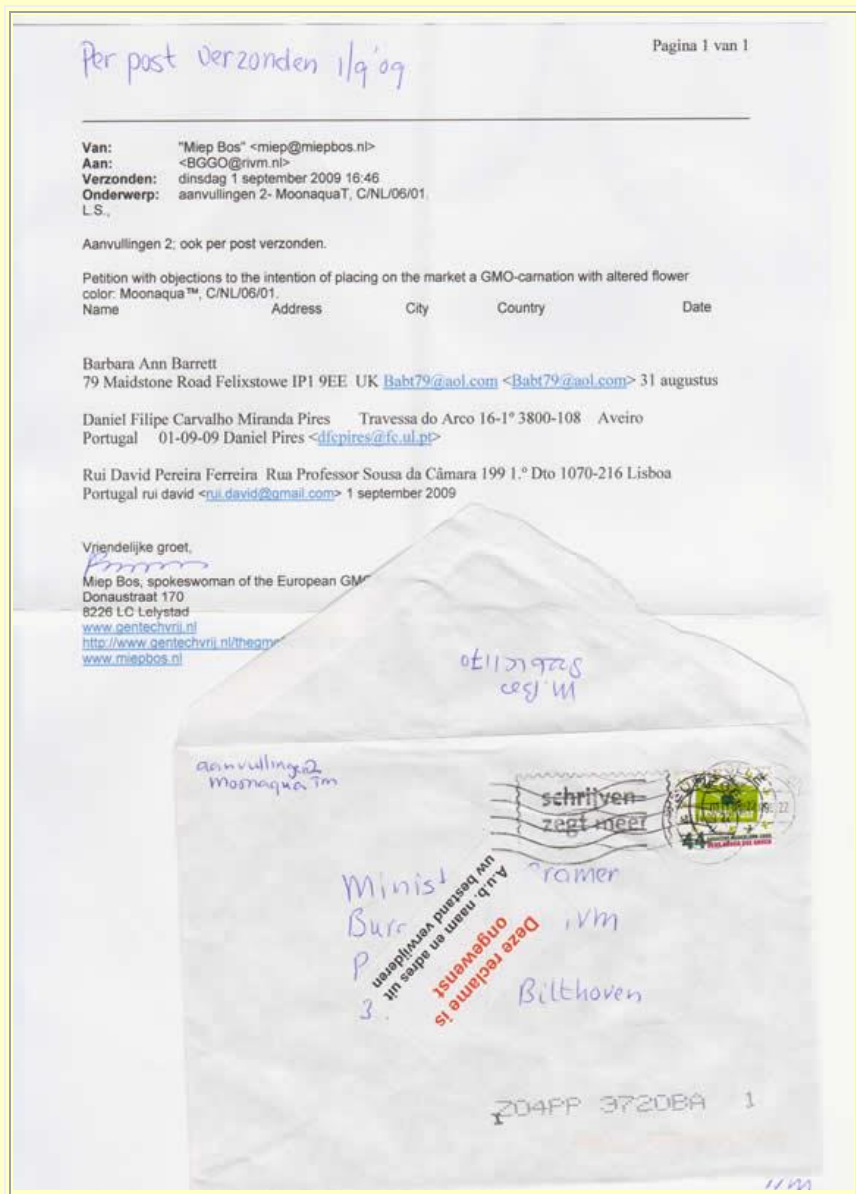 Per post verzonden 1/9'09
Pagina 1 van 1
Van: "Miep Bos" <miep@miepbos.nl>
Aan: <BGGO@rivm.nl>
Verzonden: dinsdag 1 september 2009 16:46
Onderwerp: aanvullingen 2- MoonaquaT, C/NL/06/01.
L.S.,
Aanvullingen 2; ook per post verzonden.
Petition with objections to the intention of placing on the market a GMO-carnation with altered flower
color: Moonaqua™, C/NL/06/01.
Name Address City Country Date
Barbara Ann Barrett
79 Maidstone Road Felixstowe IP1 9EE UK Babt79@aol.com <Babt79@aol.com> 31 augustus
Daniel Filipe Carvalho Miranda Pires Travessa do Arco 16-1º 3800-108 Aveiro
Portugal 01-09-09 Daniel Pires <dfcpires@fc.ul.pt>
Rui David Pereira Ferreira Rua Professor Sousa da Câmara 199 1.º Dto 1070-216 Lisboa
Portugal rui david <rui.david@gmail.com> 1 september 2009
Vriendelijke groet,
Miep Bos, spokeswoman of the European GM
Donaustraat 170
8226 LC Lelystad
www.gentechvrij.nl
http://www.gentechvrij.nl/thegm
www.miepbos.nl
M. Bos
8226LC 170
aanvullingen 2
Moonaqua Tm
schrijven-
zegt meer
44
Minis ramer
Bur ivm
P
3. Bilthoven
A.u.b. naam en adres uit
uw bestand verwijderen
Deze reclame is
ongewenst
Z04PP 3720BA 1